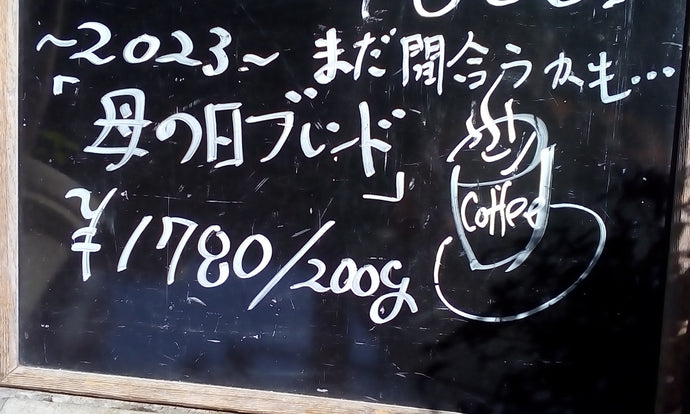 ~2023~ まだ間合うかも…
「母の日ブレンド」
¥1780/200g
Coffee